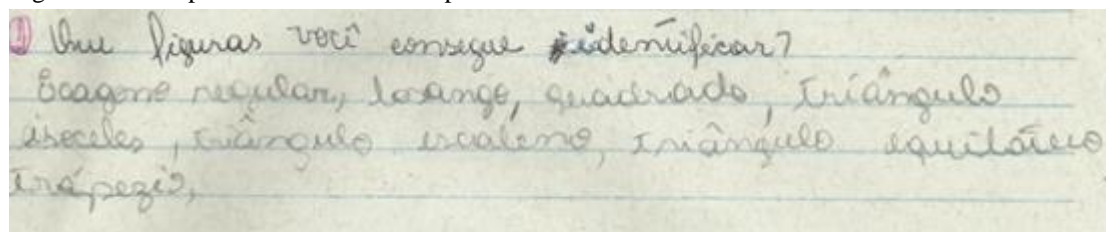 1) Que figuras você consegue identificar?
Exagono regular, losango, quadrado, triângulo
isoceles, triângulo escaleno, triângulo equilátero
trapezio,